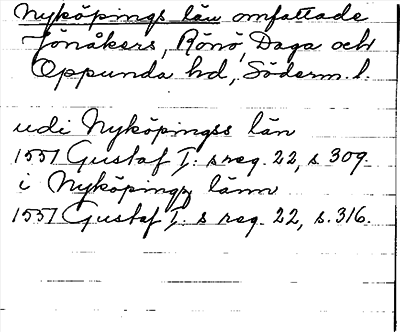 Nyköpings län omfattade
Jönåkers, Rönö, Daga och
Oppunda hd, Söderm. l.
udi Nyköpingss län
1551 Gustaf I: s reg. 22, s 309.
i Nyköpingz länn
1551 Gustaf I: s reg. 22, s. 316.